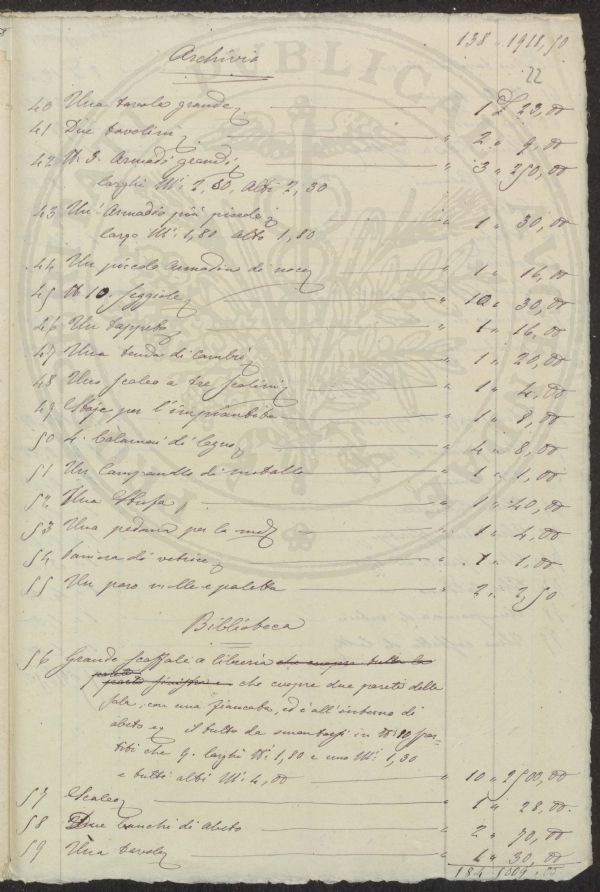 138 " 1918,50
22
Archivio
40 Una tavola grande 1 £ 23,00
41 Due tavolini " 2 " 9,00
42 N. 3. Armadi grandi " 3 " 250,00
larghi M.i 2,80, Alti 2,30
43 Un' Armadio più piccolo " 1 " 30,00
largo M.i 1,80 alto 1,80
44 Un piccolo Armadino di noce " 1 " 16,00
45 N 10 Seggiole " 10 " 30,00
46 Un tappeto " 1 " 16,00
47 Una tenda di " 1 " 20,00
48 Uno Scaleo a tre Scalini " 1 " 4,00
49 Stoje per l'impiantito " 1 " 8,00
50 4. Calamai di legno " 4 " 8,00
51 Un Campanello di metallo " 1 " 1,00
52 Una Stufa " 1 " 40,00
53 Una pedana per la " 1 " 4,00
54 di vetrice " 1 " 1,00
55 Un paro molle e paletta " 2 " 2,50
Biblioteca
56 Grande Scaffale a libreria che cuopre tutta la
parete
che cuopre due pareti della
Sala, con una fiancata, ed è all'interno di
abeto il tutto da smontarsi in N. 10 par-
titi che 9. larghi M.i 1,80 e uno M.i 1,30
e tutti alti M.i 4,00 " 10 " 2500,00
57 Scaleo " 1 " 28,00
58 Due banchi di Abeto " 2 " 70,00
59 Una tavola " 1 " 30,00
184